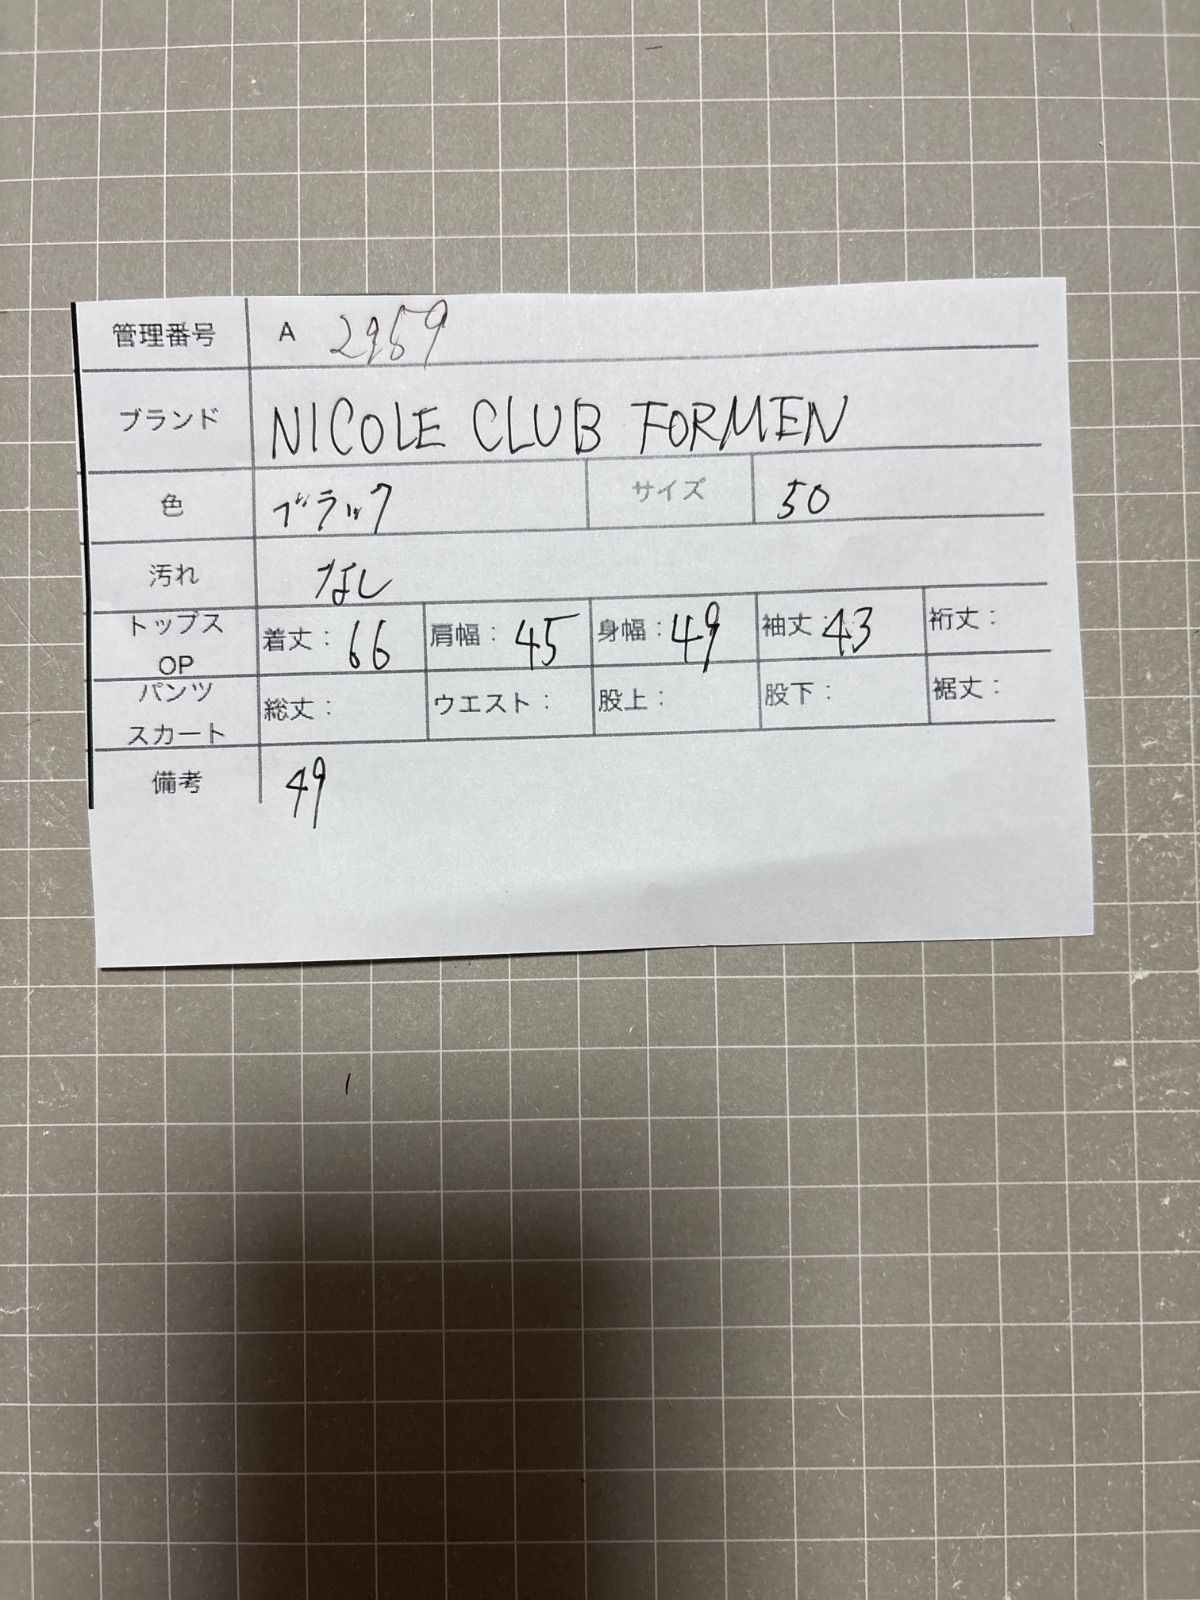 管理番号 A 2959
ブランド NICOLE CLUB FORMEN
色 ブラック サイズ 50
汚れ なし
トップス OP 着丈：66 肩幅：45 身幅：49 袖丈：43 裄丈：
パンツ スカート 総丈： ウエスト： 股上： 股下： 裾丈：
備考 49